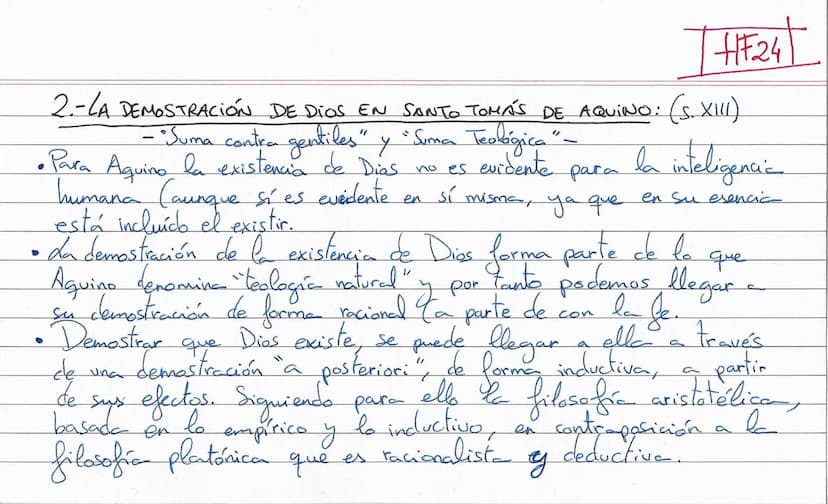 HF24
2.-LA DEMOSTRACIÓN DE DIOS EN SANTO TOMÁS DE AQUINO: (S. XIII)
-"Suma contra gentiles" y "Suma Teológica"-
• Para Aquino la existencia de Dios no es evidente para la inteligencia
humana (aunque sí es evidente en sí misma, ya que en su esencia
está incluído el existir.
• La demostración de la existencia de Dios forma parte de lo que
Aquino denomina "teología natural" y por tanto podemos llegar a
su demostración de forma racional (a parte de con la fe.
• Demostrar que Dios existe, se puede llegar a ella a través
de una demostración "a posteriori", de forma inductiva, a partir
de sus efectos. Siguiendo para ello la filosofía aristotélica,
basada en lo empírico y lo inductivo, en contraposición a la
filosofía platónica que es racionalista y deductiva.